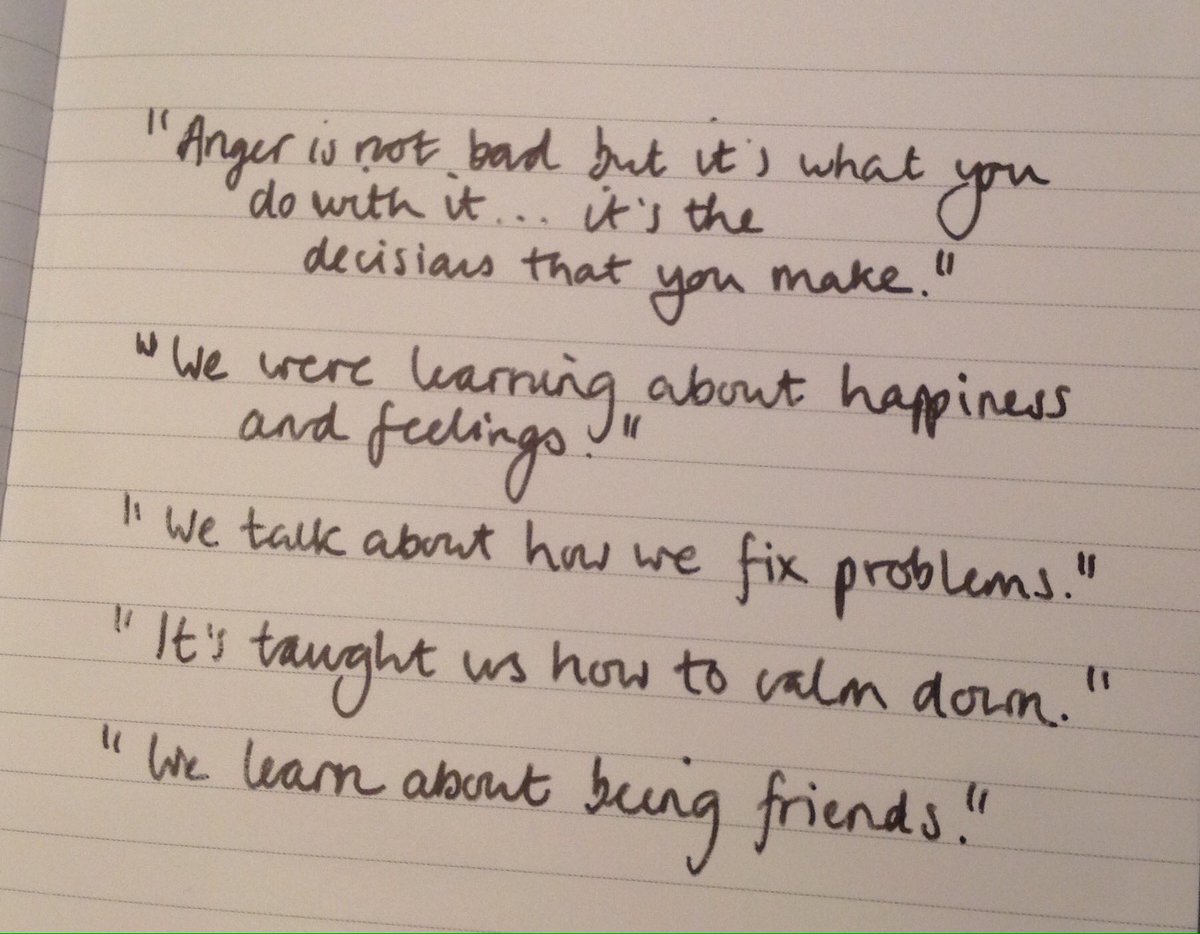 "Anger is not bad but it's what you
do with it... it's the
decisions that you make."
"We were learning about happiness
and feelings."
"We talk about how we fix problems."
"It's taught us how to calm down."
"We learn about being friends."